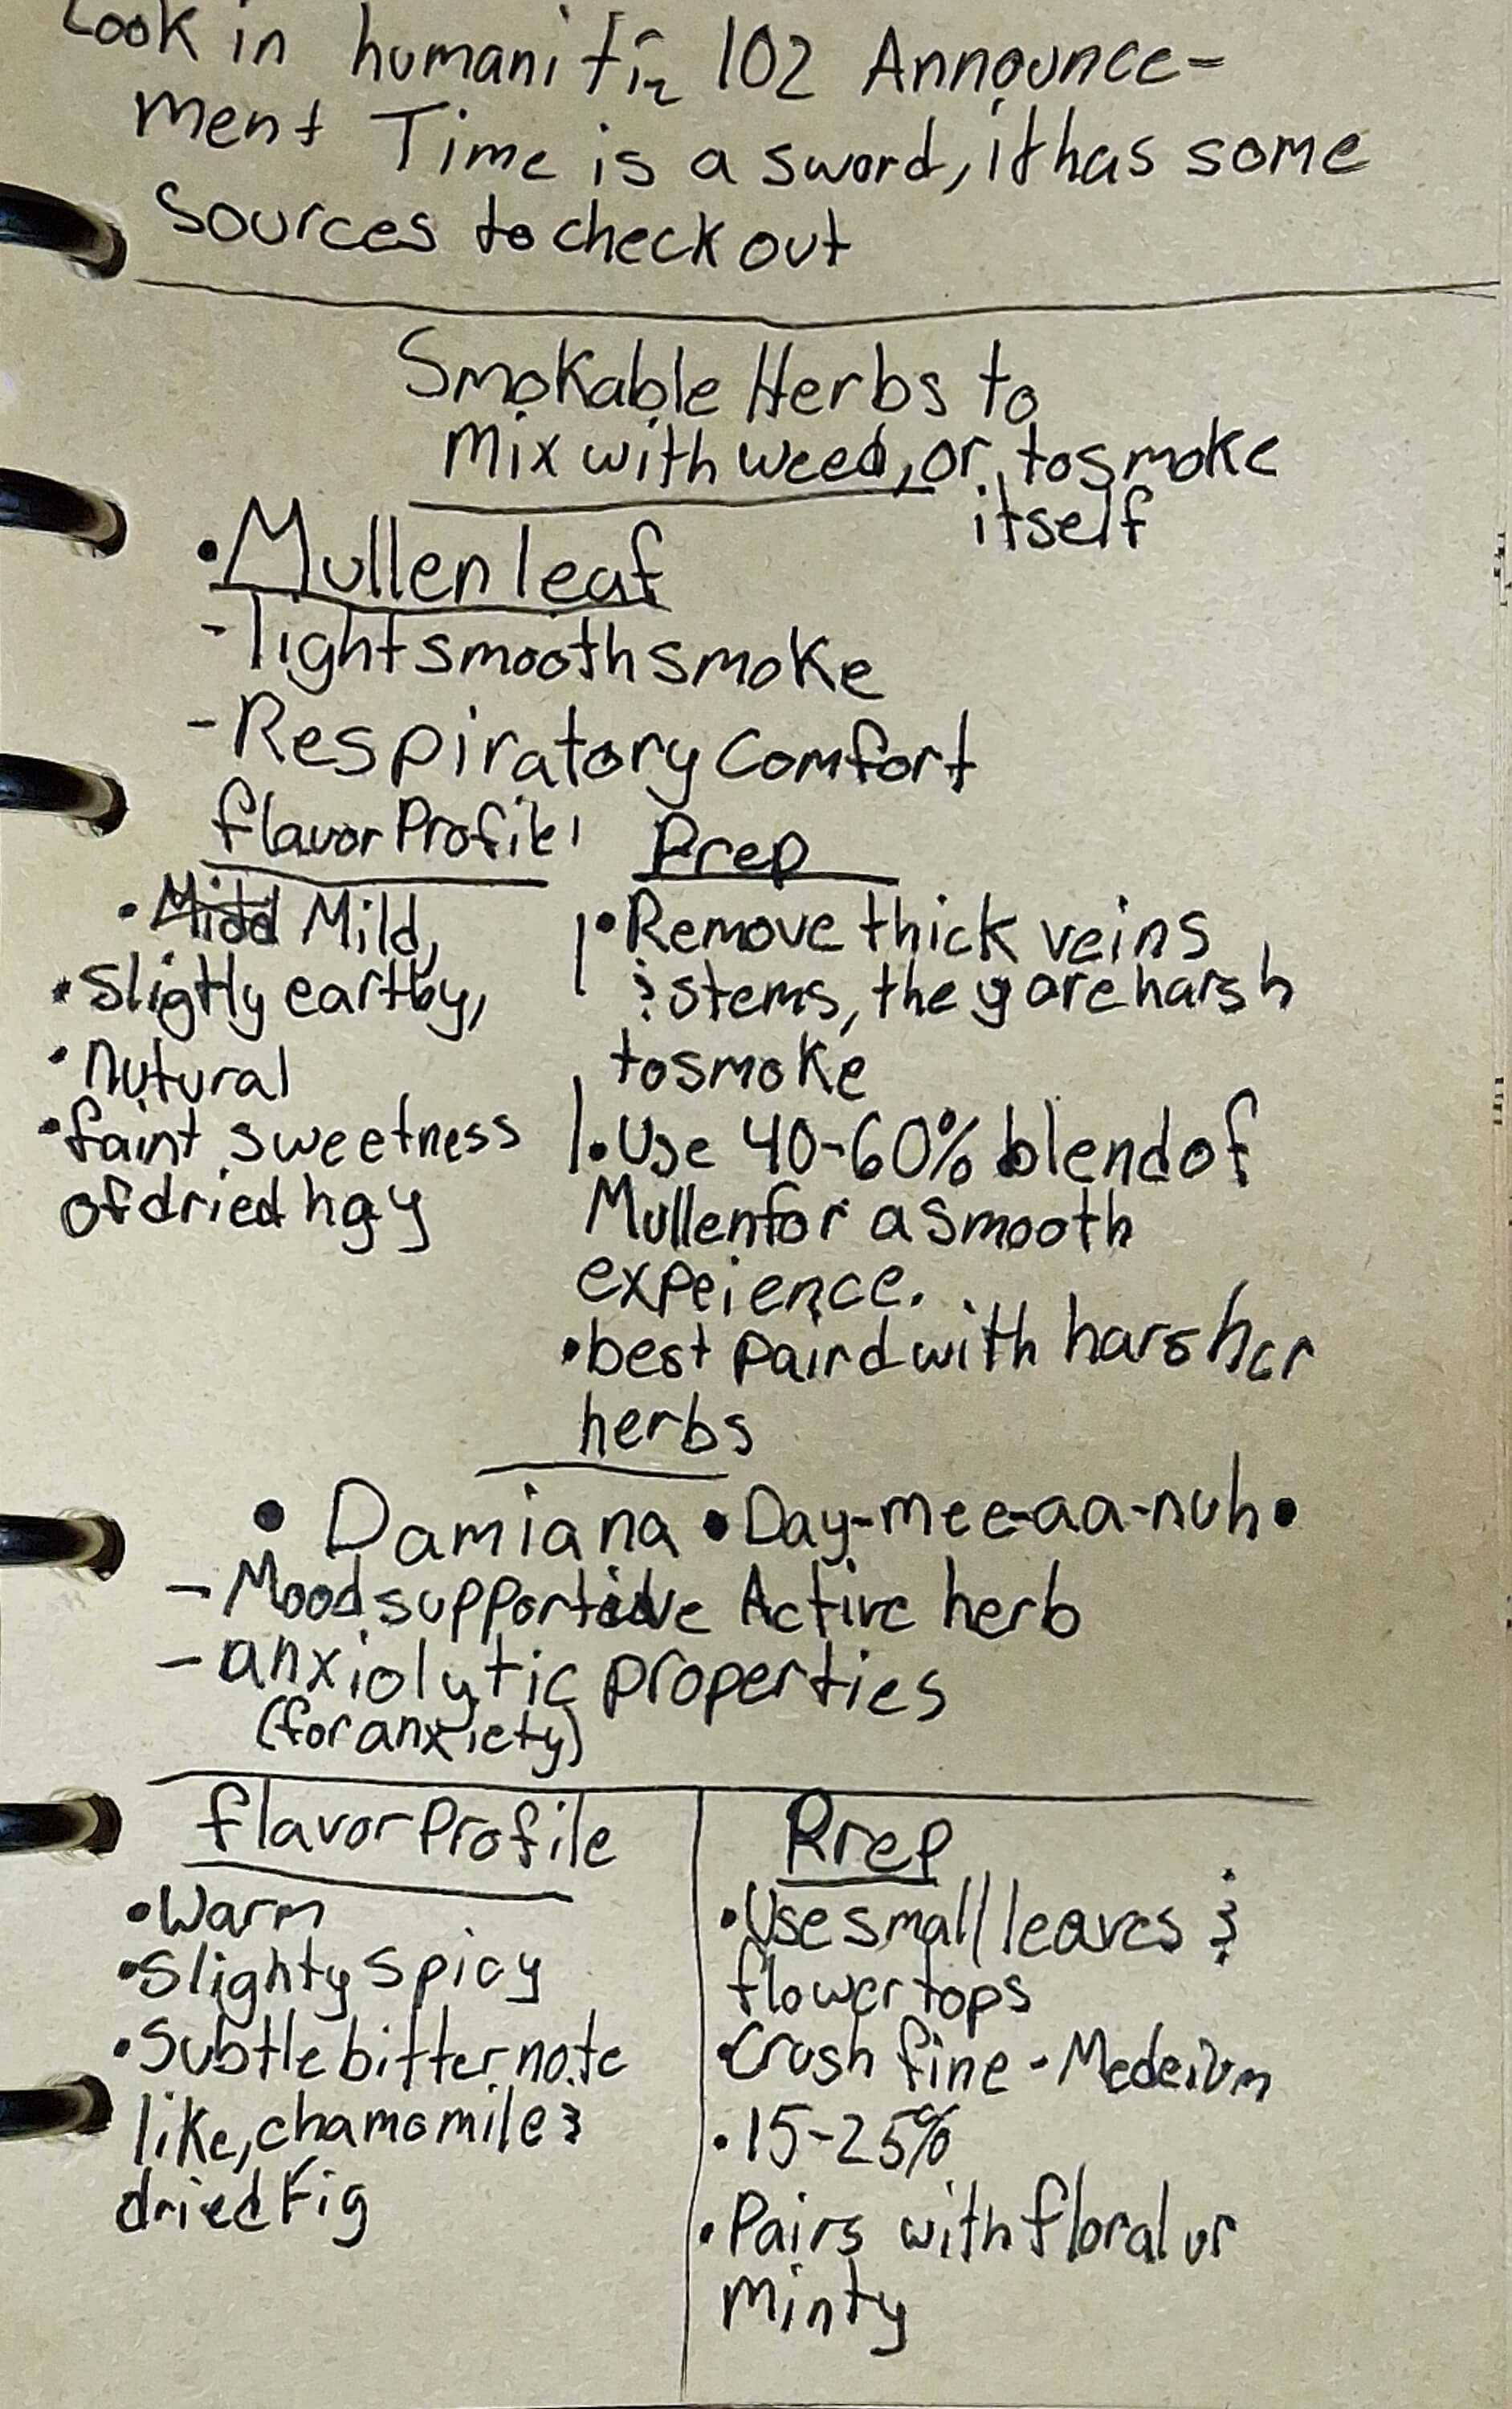 Look in humanitiz 102 Announce-
ment Time is a sword, it has some
Sources to check out
Smokable Herbs to
Mix with weed, or to smoke
itself
• Mullen leaf
- light smooth smoke
- Respiratory comfort
flavor Profile
• Mild,
• Sligtly earthy,
• nutural
• faint sweetness
of dried hay
Prep
• Remove thick veins
& stems, they are harsh
to smoke
• Use 40-60% blend of
Mullen for a smooth
expeience.
• best paird with harsher
herbs
• Damiana • Day-mee-aa-nuh •
- Mood supportive Active herb
- anxiolytic properties
(for anxiety)
flavor Profile
• Warm
• Slighty spicy
• Subtle bitter note
like, chamomile &
dried Fig
Prep
• Use small leaves &
flower tops
• Crush fine - Medeium
• 15-25%
• Pairs with floral or
minty